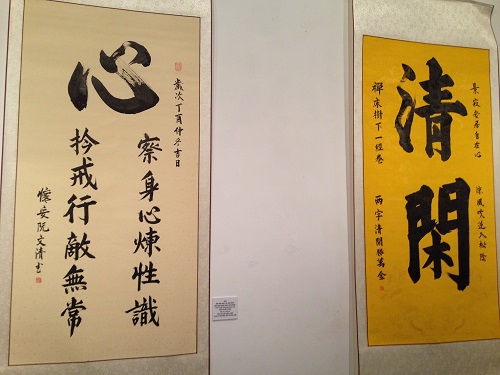 心
歲次丁酉仲冬吉日
察身心煉性識
矜戒行敵無常
懷安阮文清書
清閑
景寂安居自在心
涼風吹遞入松陰
禪床樹下一經卷
兩字清閑勝萬金